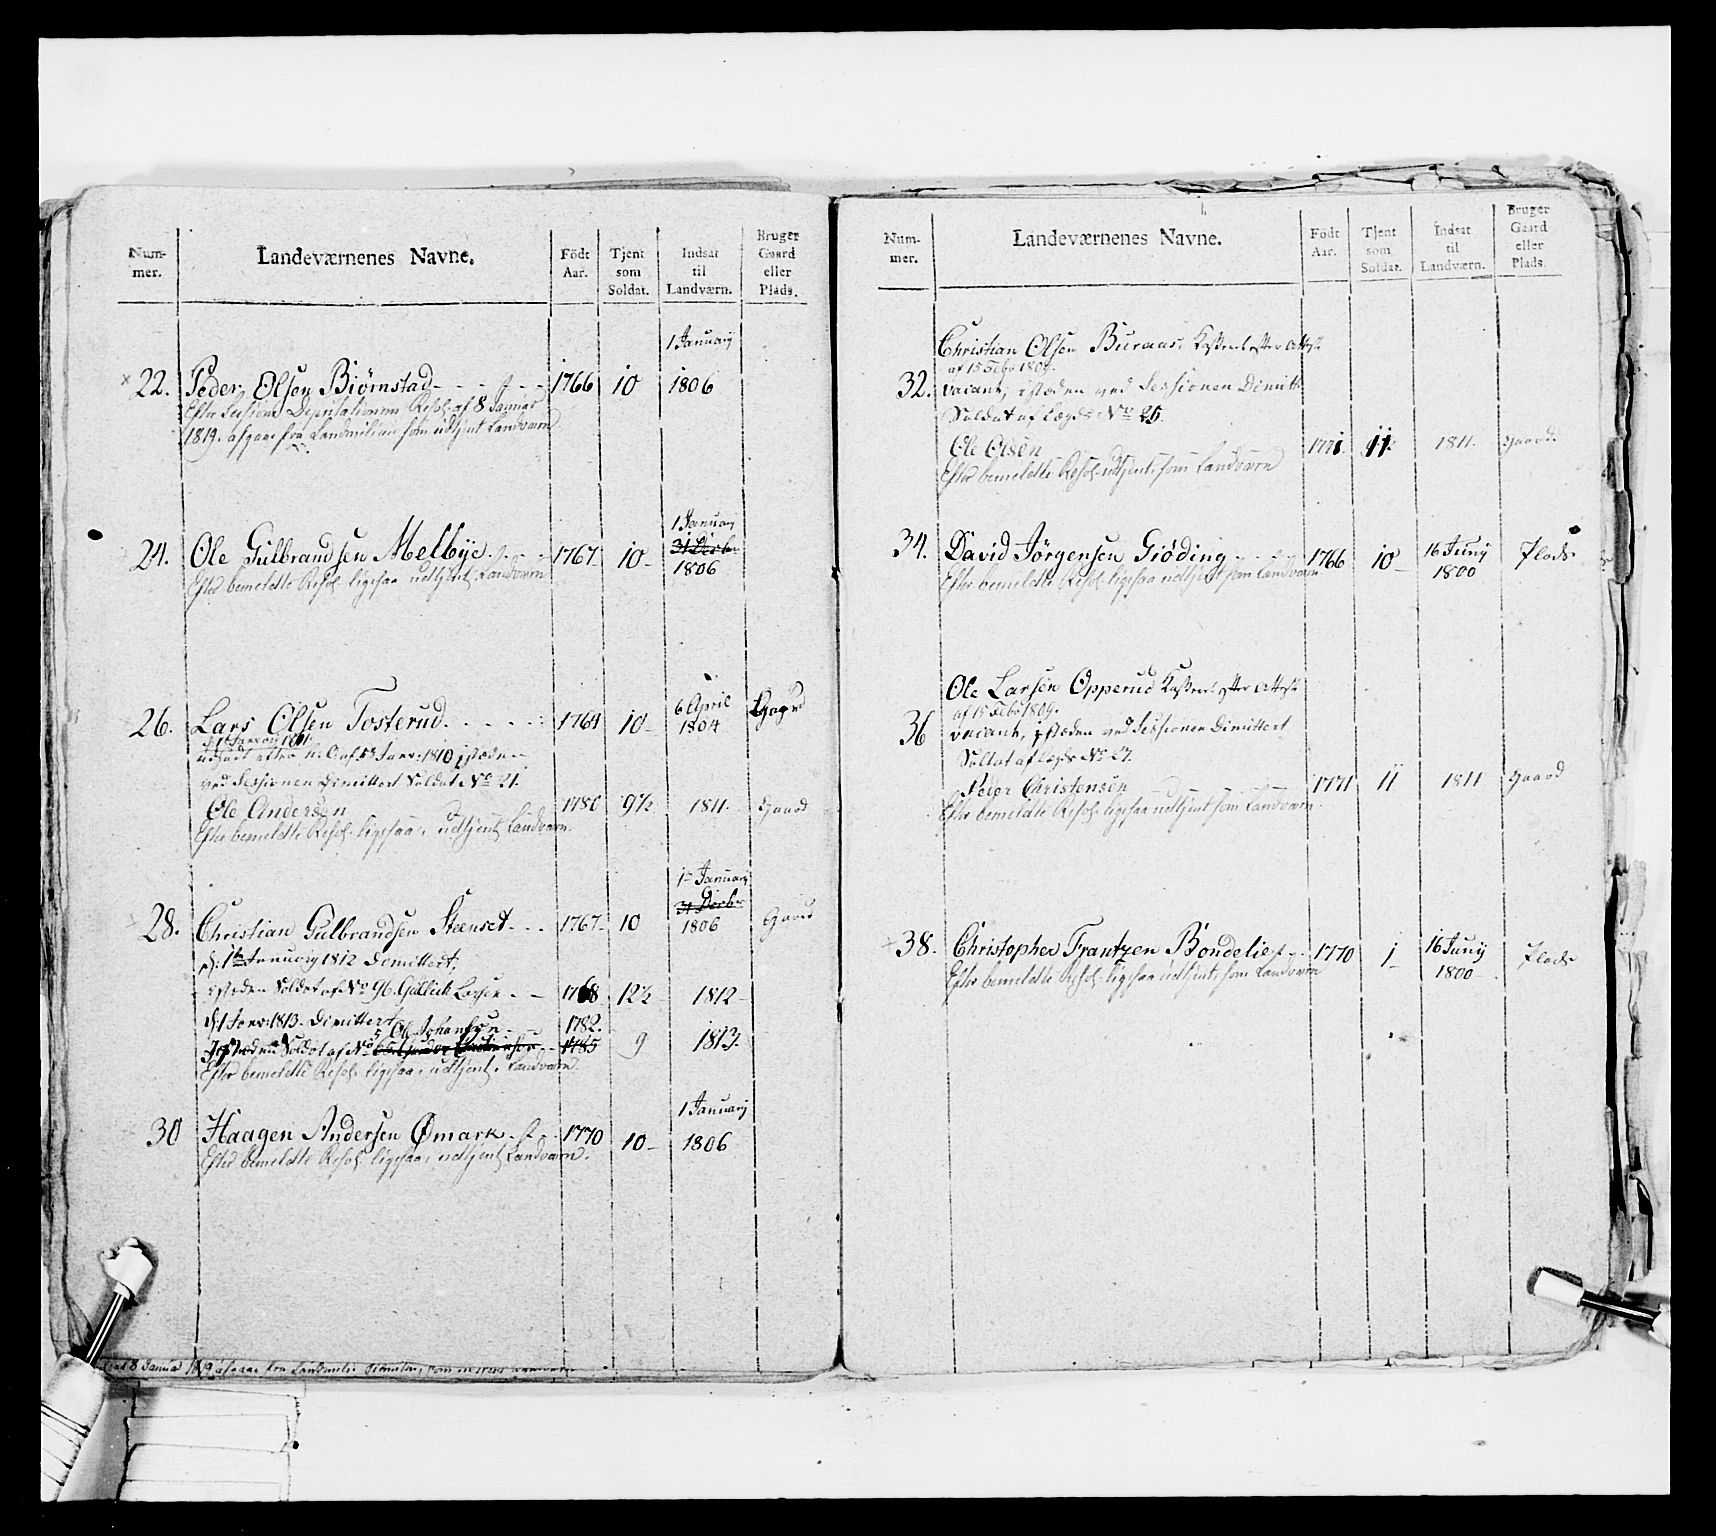 Num-
mer.
Landeværnenes Navne.
Födt
Aar.
Tjent
som
Soldat.
Indsat
til
Landværn.
Bruger
Gaard
eller
Plads.
1 Januarij
22. Peder Olsen Biørnstad 1766 10 1806
Efter Sessions Deputationens Resol. af 8 Januar
1819. afgaae fra Landmilicen som udtjent Landværn
1 Januarj
31 Decbr
24. Ole Gulbrandsen Melbÿe 1767 10 1806
Efter bemeldte Resol. ligesaa udtjent Landværn
6 April
26. Lars Olsen Tosterud 1764 10 1804 Gaard
d. 1 Januarij 1811
1810 istæden
ved Sessionen Dimittert Soldat No 21.
Ole Andersen 1780 9½ 1811. Gaard
Efter bemeldte Resol. ligesaa, udtjent Landværn.
1 Januarj
31 Decbr
28. Christian Gulbrandsen Steenset 1767 10 1806 Gaard
d. 1te January 1812 Dimittert,
istæden Soldat af No 96. Gullick Larsen 1768 12½ 1812
d. 1 Janr. 1813. Dimittert Ole Johansen 1782.
Istæden Soldat af No 1785 9 1813.
Efter bemeldte Resol. ligesaa, udtjent, Landværn.
1 Januarij
30 Haagen Andersen Ømark 1770 10 1806
Efter bemeldte Resol. ligesaa, udtjent Landværn.
8 Januar 1819 afgaae fra Landmilic
Num-
mer.
Landeværnenes Navne.
Födt
Aar.
Tjent
som
Soldat.
Indsat
til
Landværn.
Bruger
Gaard
eller
Plads.
Christian Olsen Buraas, Kasseret efter Attest
af 15 Febr 1809.
32. vacant, istæden ved Sessionen Dimitt.
Soldat af Lægds No 25.
Ole Olsen 1771 11 1811. Gaard
Efter bemeldte Resol. udtjent som Landværn
34. David Jörgensen Giøding 1766 10 16 Junij 1800 Plads
Efter bemeldte Resol. ligesaa udtjent som Landværn
Ole Larsen Opperud Kasseret efter Attest
af 15 Febr 1809.
36 vacant, istæden ved Sessionen Dimittert
Soldat af Lægds No 27.
Peder Christensen 1771 11 1811 Gaard
Efter bemeldte Resol. ligesaa udtjent som Landværn.
38. Christopher Frantzen Bondelie 1770 1 16 Junij 1800 Plads
Efter bemeldte Resol. ligesaa udtjent, som Landværn